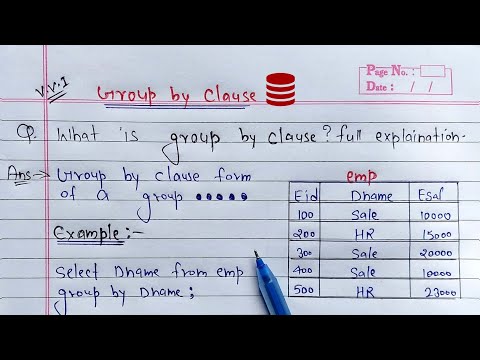 Page No. :
Date : / /
V.V.I
Group by Clause
Q. What is group by clause? full explaination.
Ans → Group by clause form
of a group •••••
Example:-
Select Dname from emp
group by Dname;
emp
Eid Dname Esal
100 Sale 10000
200 HR 15000
300 Sale 20000
400 Sale 10000
500 HR 23000